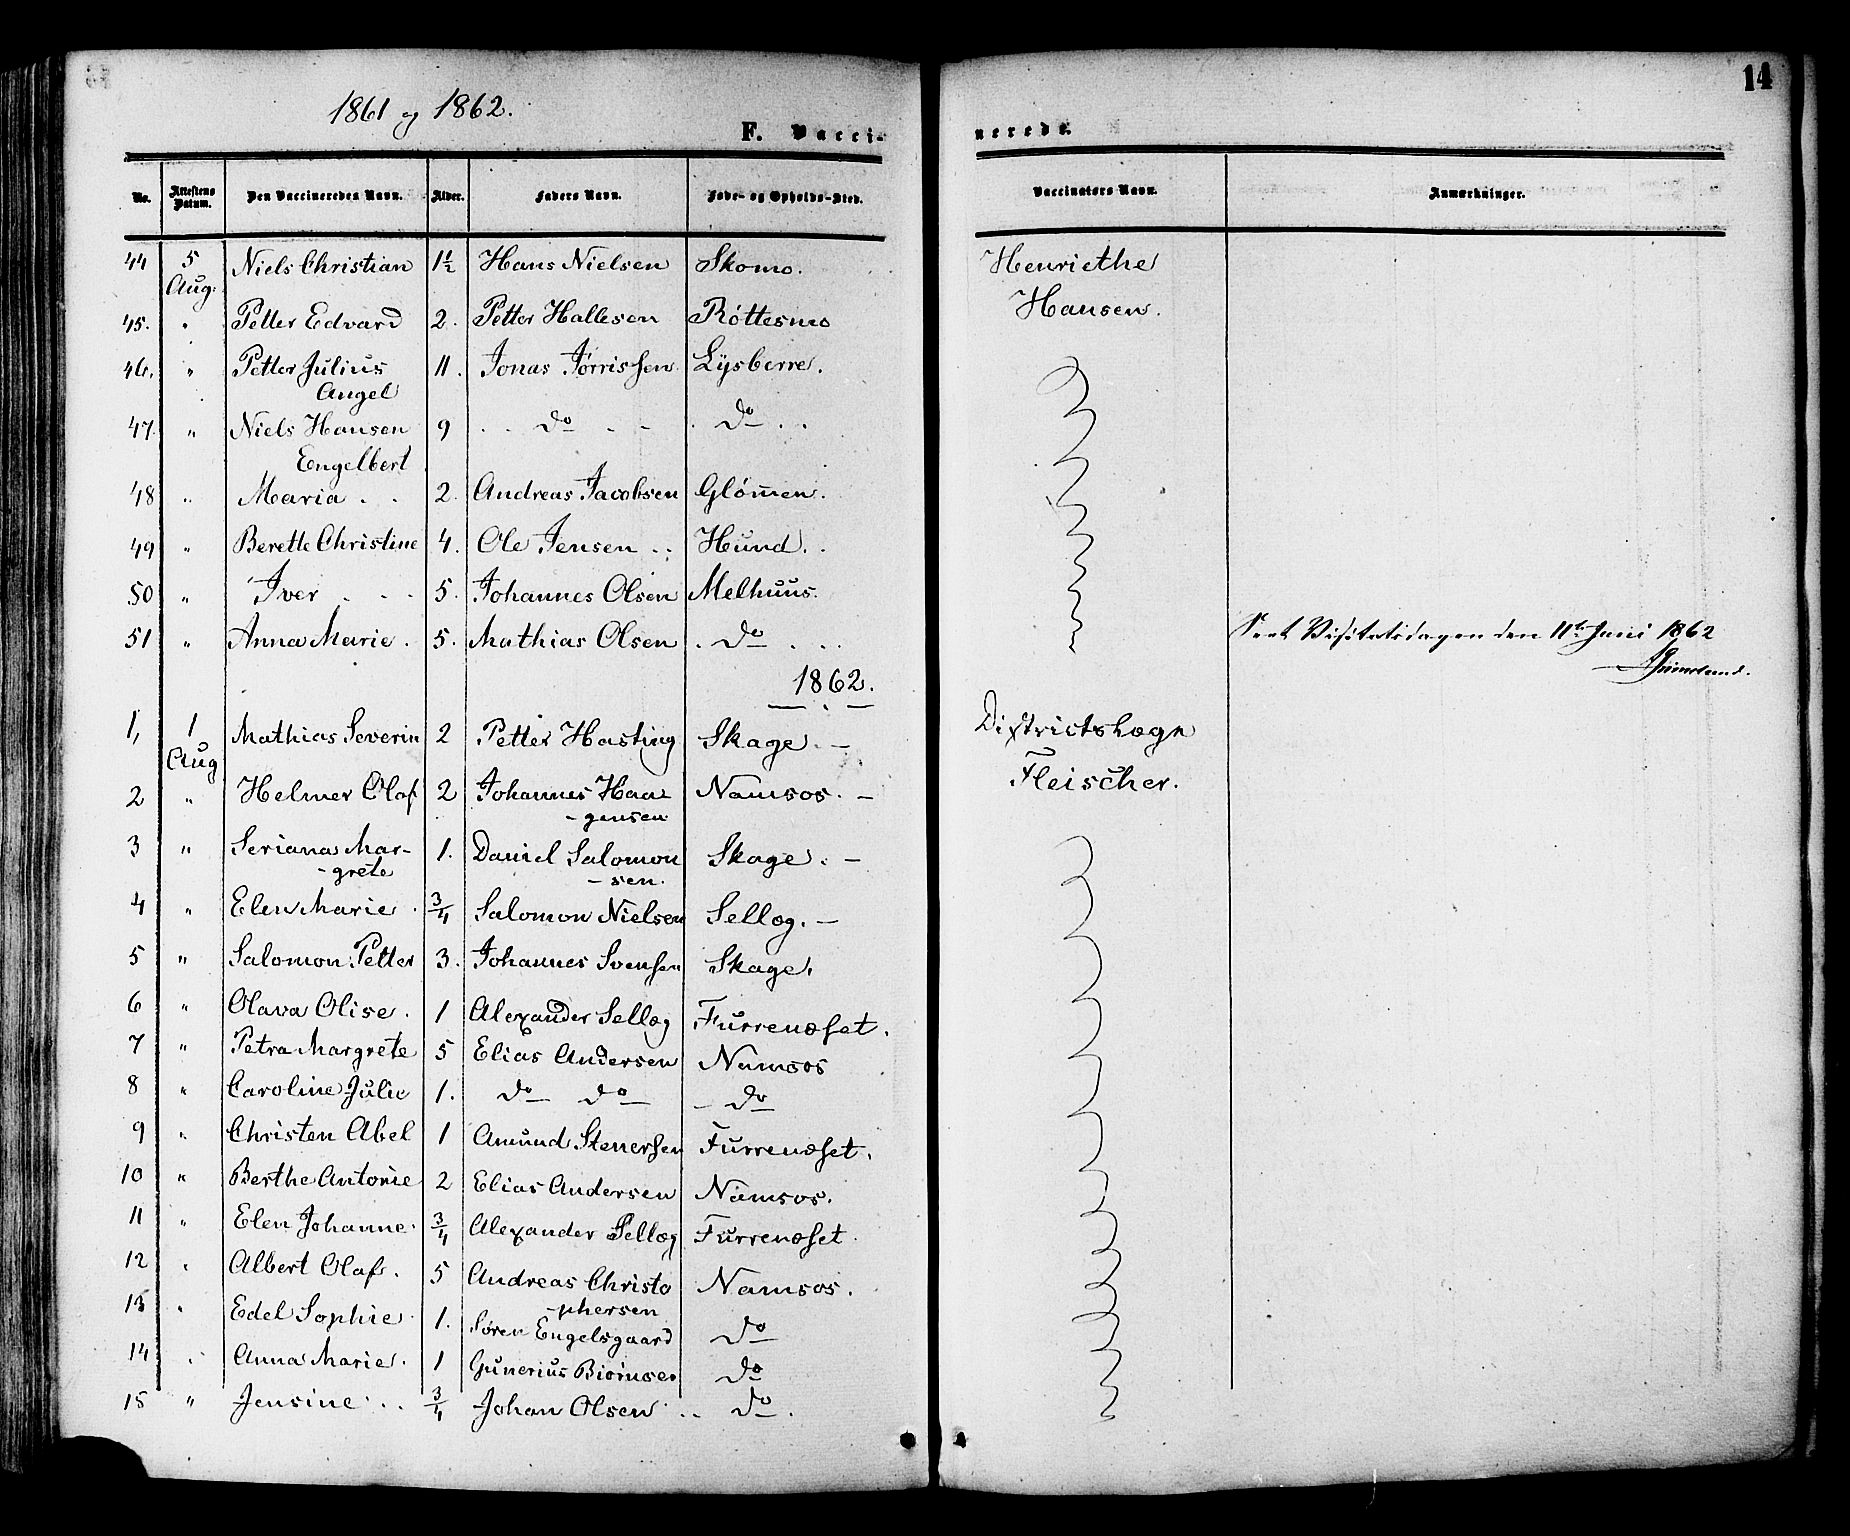 1861 og 1862.
14
F. Vacci-
nerede.
No.
Attestens Datum.
Den Vaccineredes Navn.
Alder.
Faders Navn.
Føde- og Opholds-Sted.
Vaccinators Navn.
Anmærkninger.
44 5 Aug: Niels Christian 1½ Hans Nielsen Skomo. Henriethe Hansen.
45. " Petter Edvard 2. Petter Hallesen Røttesmo
46. " Petter Julius Angel 11. Jonas Jørrissen Lysberre.
47. " Niels Hansen Engelbert 9 do do
48 " Maria 2. Andreas Jacobsen Glømen.
49 " Berette Christine 4. Ole Jensen Hund.
50 " Iver 5. Johannes Olsen Melhuus.
51 " Anna Marie 5. Mathias Olsen do
Seet Visitatsdagen den 11te Juni 1862
1862.
1, 1 Aug Mathias Severin 2 Petter Hasting Skage. Districtslæge Fleischer.
2 " Helmer Olaf 2 Johannes Haa-gensen Namsos.
3 " Seriana Mar-grete 1. Daniel Salomon-sen. Skage.
4 " Elen Marie 3/4 Salomon Nielsen Sellæg.
5 " Salomon Petter 3. Johannes Svensen Skage.
6 " Olava Olise. 1 Alexander Sellæg Furrenæset.
7 " Petra Margrete 5 Elias Andersen Namsos
8 " Caroline Julie 1. do do do
9 " Christen Abel 1 Amund Stenersen Furrenæset.
10 " Berthe Antonie 2 Elias Andersen Namsos.
11 " Elen Johanne. 3/4 Alexander Sellæg Furrenæset.
12 " Albert Olaf. 5 Andreas Christo-phersen Namsos.
13 " Edel Sophie 1. Søren Engelsgaard do
14 " Anna Marie. 1 Gunerius Biørnsen do
15 " Jensine 3/4 Johan Olsen do